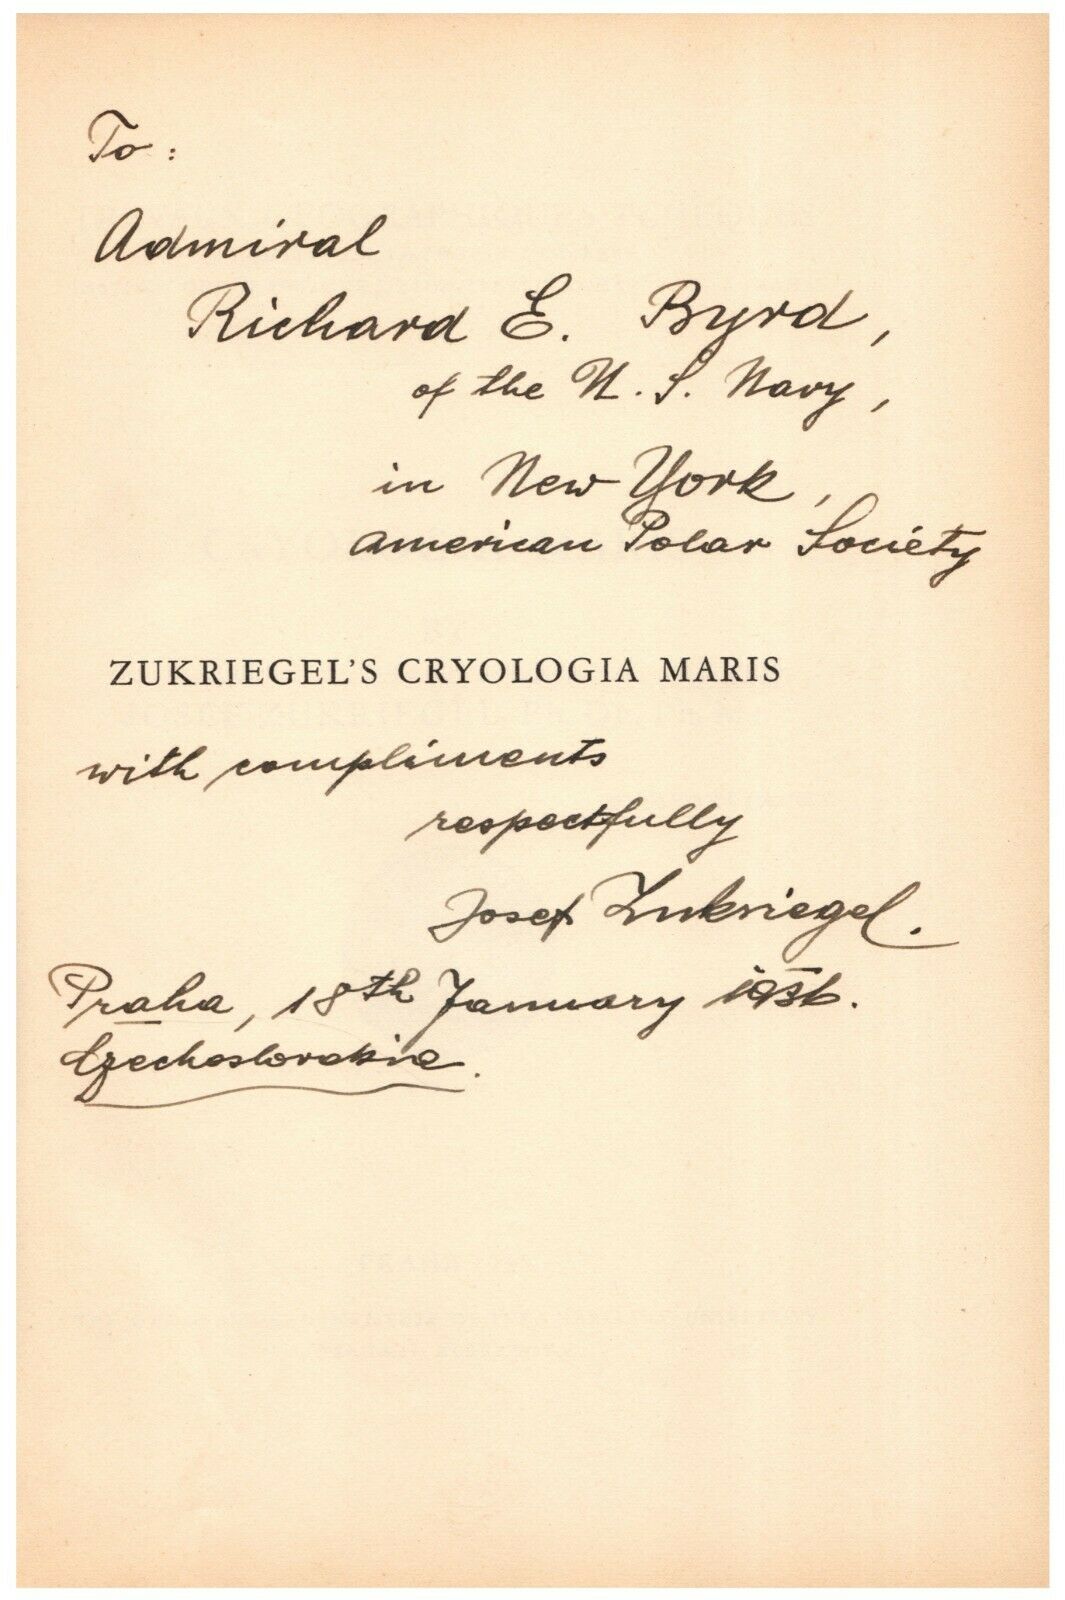 To:
Admiral
Richard E. Byrd,
of the U. S. Navy,
in New York,
American Polar Society
ZUKRIEGEL'S CRYOLOGIA MARIS
with compliments
respectfully
Josef Zukriegel.
Praha, 18th January 1936.
Czechoslovakia.